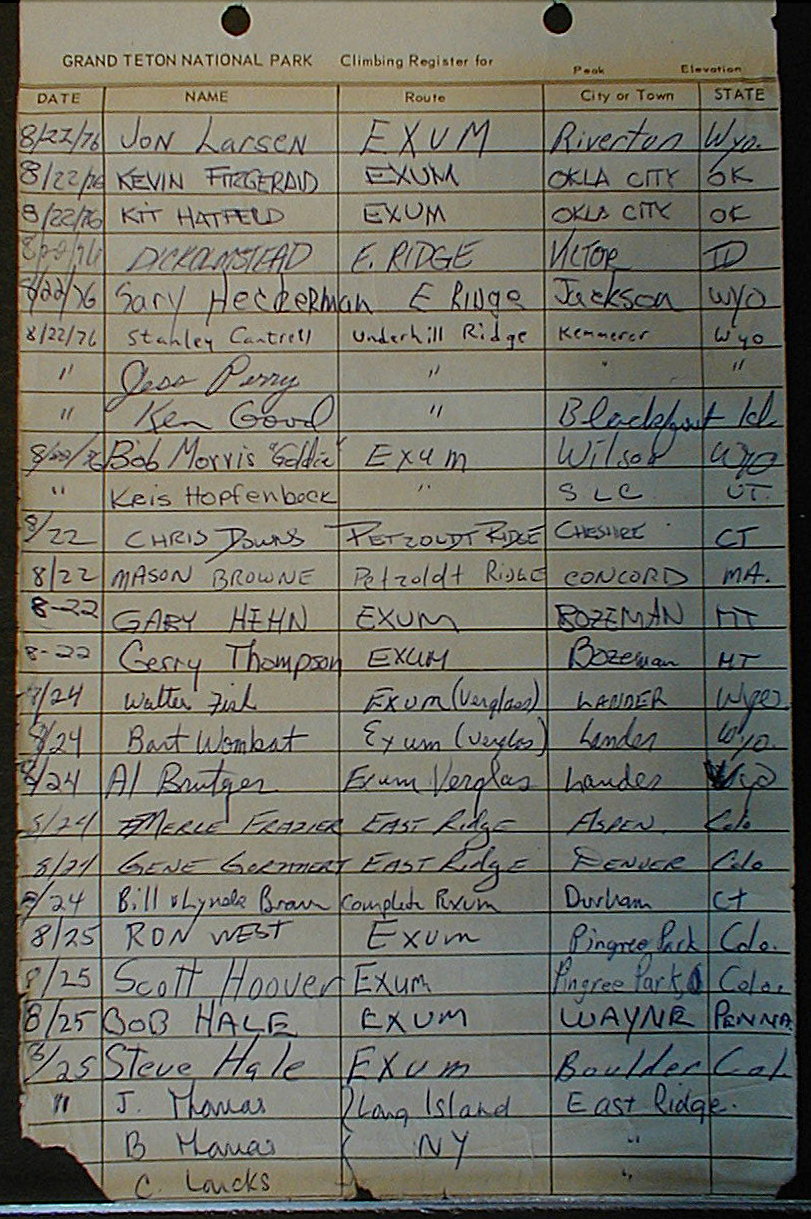 GRAND TETON NATIONAL PARK Climbing Register for Peak Elevation
DATE NAME Route City or Town STATE
8/22/76 JON Larsen EXUM Riverton Wyo.
8/22/76 KEVIN FITZGERALD EXUM OKLA CITY OK
8/22/76 KIT HATFIELD EXUM OKLA CITY OK
DICK OLMSTEAD E. RIDGE VICTOR ID
8/22/76 Gary Heckerman E Ridge Jackson WYO
8/22/76 Stanley Cantrell Underhill Ridge Kemmerer Wyo
" Jess Perry " " "
" Ken Good " Blackfoot Id.
8/22/76 Bob Morris "Goldie" Exum Wilson Wyo
" Kris Hopfenbeck " SLC UT.
8/22 CHRIS DOWNS PETZOLDT RIDGE CHESHIRE CT
8/22 MASON BROWNE Petzoldt RIDGE CONCORD MA.
8-22 GARY HEHN EXUM BOZEMAN MT
8-22 Gerry Thompson EXUM Bozeman MT
8/24 Walter Fish Exum (Verglass) LANDER Wyo.
8/24 Bart Wombat Exum (verglas) Lander Wyo.
8/24 Al Exum Verglas Lander Wyo
8/24 MERLE FRAZIER EAST Ridge ASPEN. Colo
8/24 GENE EAST Ridge DENVER Colo
8/24 Bill & Lynda Braun Complete Exum Durham CT
8/25 RON WEST Exum Pingree Park Colo.
8/25 Scott Hoover Exum Pingree Park, Colo.
8/25 BOB HALE EXUM WAYNE PENNA
8/25 Steve Hale Exum Boulder Col.
" J. Long Island East Ridge.
B NY "
C. Loucks "